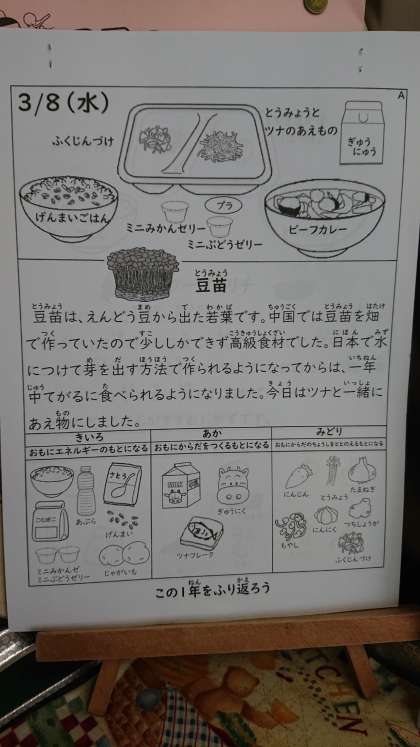 3/8(水)
A
ふくじんづけ
とうみょうと
ツナのあえもの
ぎゅう
にゅう
げんまいごはん
プラ
ミニみかんゼリー
ミニぶどうゼリー
ビーフカレー
とうみょう
豆苗
とうみょう まめ で わかば ちゅうごく とうみょう はたけ
豆苗は、えんどう豆から出た若葉です。中国では豆苗を畑
つく すこ こうきゅうしょくざい にほん みず
で作っていたので少ししかできず高級食材でした。日本で水
め だ ほうほう つく いちねん
につけて芽を出す方法で作られるようになってからは、一年
じゅう た きょう いっしょ
中てがるに食べられるようになりました。今日はツナと一緒に
もの
あえ物にしました。
きいろ
おもにエネルギーのもとになる
あか
おもにからだをつくるもとになる
みどり
おもにからだのちょうしをととのえるもとになる
さとう
あぶら
こむぎこ
げんまい
ミニみかんゼ
ミニぶどうゼリー
じゃがいも
ぎゅうにく
ツナフレーク
にんじん
とうみょう
たまねぎ
もやし
にんにく
つちしょうが
ふくじんづけ
ねん かえ
この1年をふり返ろう